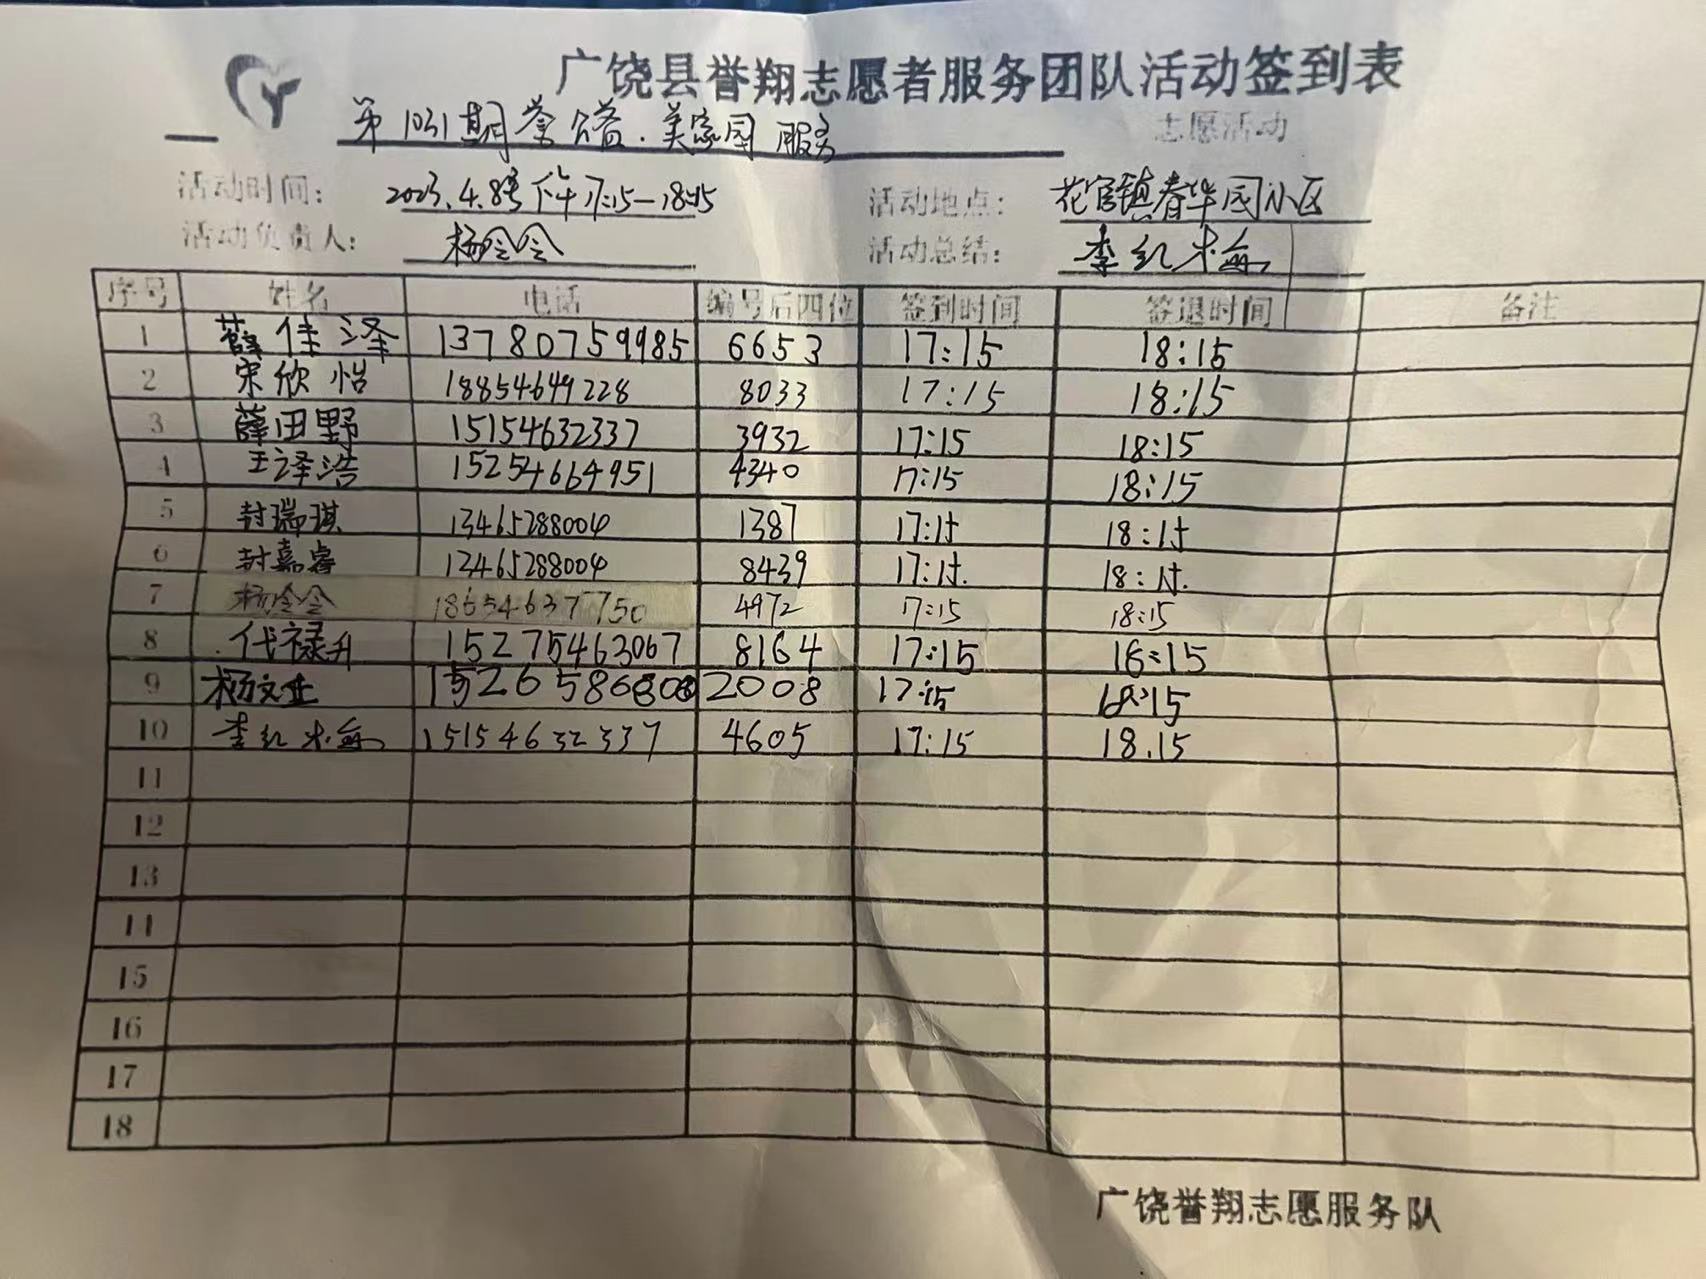 广饶县誉翔志愿者服务团队活动签到表
第1031期誉公益.美家园 服务 志愿活动
活动时间: 2023.4.8号下午17:15—18:15 活动地点: 花官镇春华园小区
活动负责人: 杨令令 活动总结: 李红梅
序号 姓名 电话 编号后四位 签到时间 签退时间 备注
1 薛佳泽 13780759985 6653 17:15 18:15
2 宋欣怡 18854649228 8033 17:15 18:15
3 薛田野 15154632337 3932 17:15 18:15
4 王泽浩 15254664951 4340 17:15 18:15
5 封瑞琪 13465288004 1387 17:15 18:15
6 封嘉睿 13465288004 8439 17:15. 18:15.
7 杨令令 18654637750 4972 17:15 18:15
8 代禄升 15275463067 8164 17:15 18:15
9 杨文业 2008 17:15 18:15
10 李红梅 15154632337 4605 17:15 18.15
11
12
13
14
15
16
17
18
广饶誉翔志愿服务队